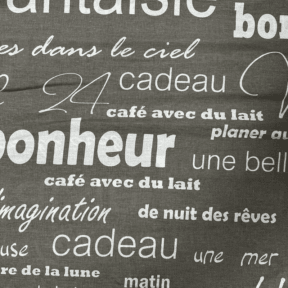 fantaisie
bon
es dans le ciel
cadeau
24
café avec du lait
planer au
bonheur
une bell
café avec du lait
imagination
de nuit des rêves
use
cadeau
une mer
re de la lune
matin